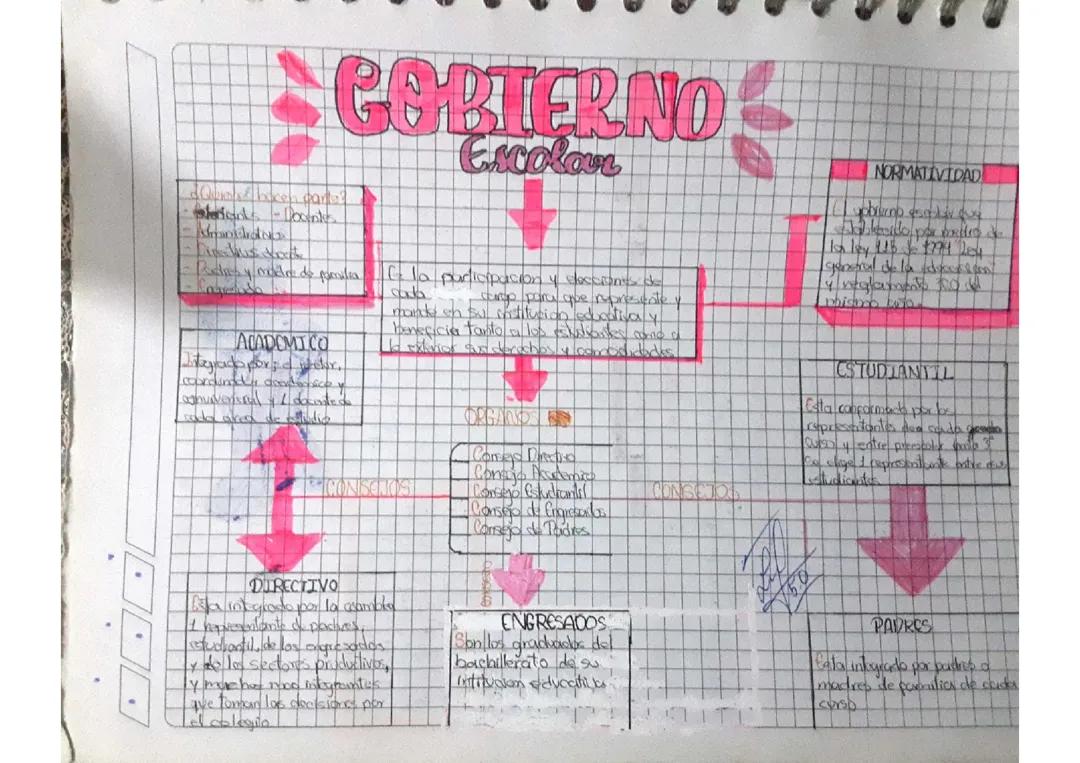 GOBIERNO
Escolar
¿Quienes hacen parte?
- Docentes
- Padres y madre de familia
NORMATIVIDAD
El gobierno escolar fue
establecido por medio de
la ley 115 de 1994 ley
general de la educacion
y reglamento
Es la participacion y elecciones de
cada cargo para que represente y
mande en su institucion educativa y
beneficie tanto a los estudiantes como a
sus derechos y comodidades
ACADEMICO
Integrado por: el rector,
y 1 docente de
cada area de estudio
ESTUDIANTIL
Esta conformado por los
representantes de cada
curso y entre preescolar hasta 3°
se elige 1 representante entre
estudiantes
ORGANOS
Consejo Directivo
Consejo Academico
Consejo Estudiantil
Consejo de Engresados
Consejo de Padres
CONSEJOS
CONSEJOS
5.0
DIRECTIVO
Esta integrado por la
1 representante de padres,
estudiantil, de los engresados
y de los sectores productivos,
y muchos mas integrantes
que toman las decisiones por
el colegio
ENGRESADOS
Son los graduados del
bachillerato de su
intitucion educativa
PADRES
Esta integrado por padres o
madres de familia de cada
curso